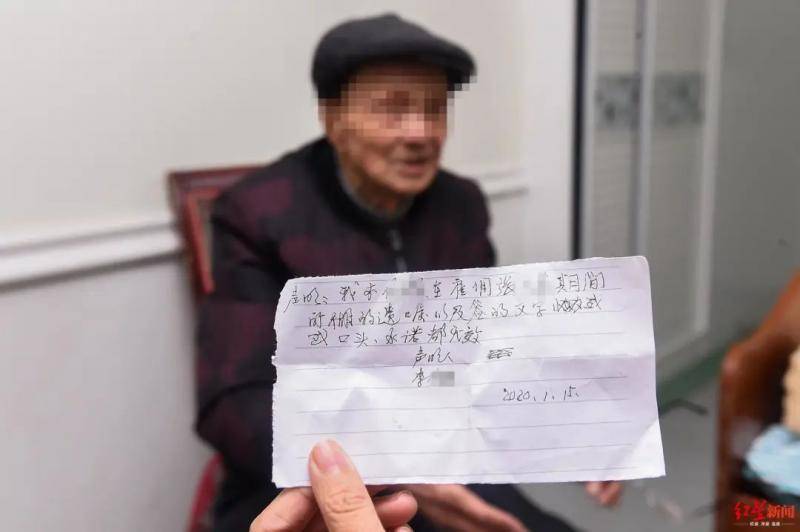 声明：我李 在雇佣张 期间
所有的遗嘱以及签的文字
或口头承诺都无效
声明人
李
2020.1.15.
红星新闻